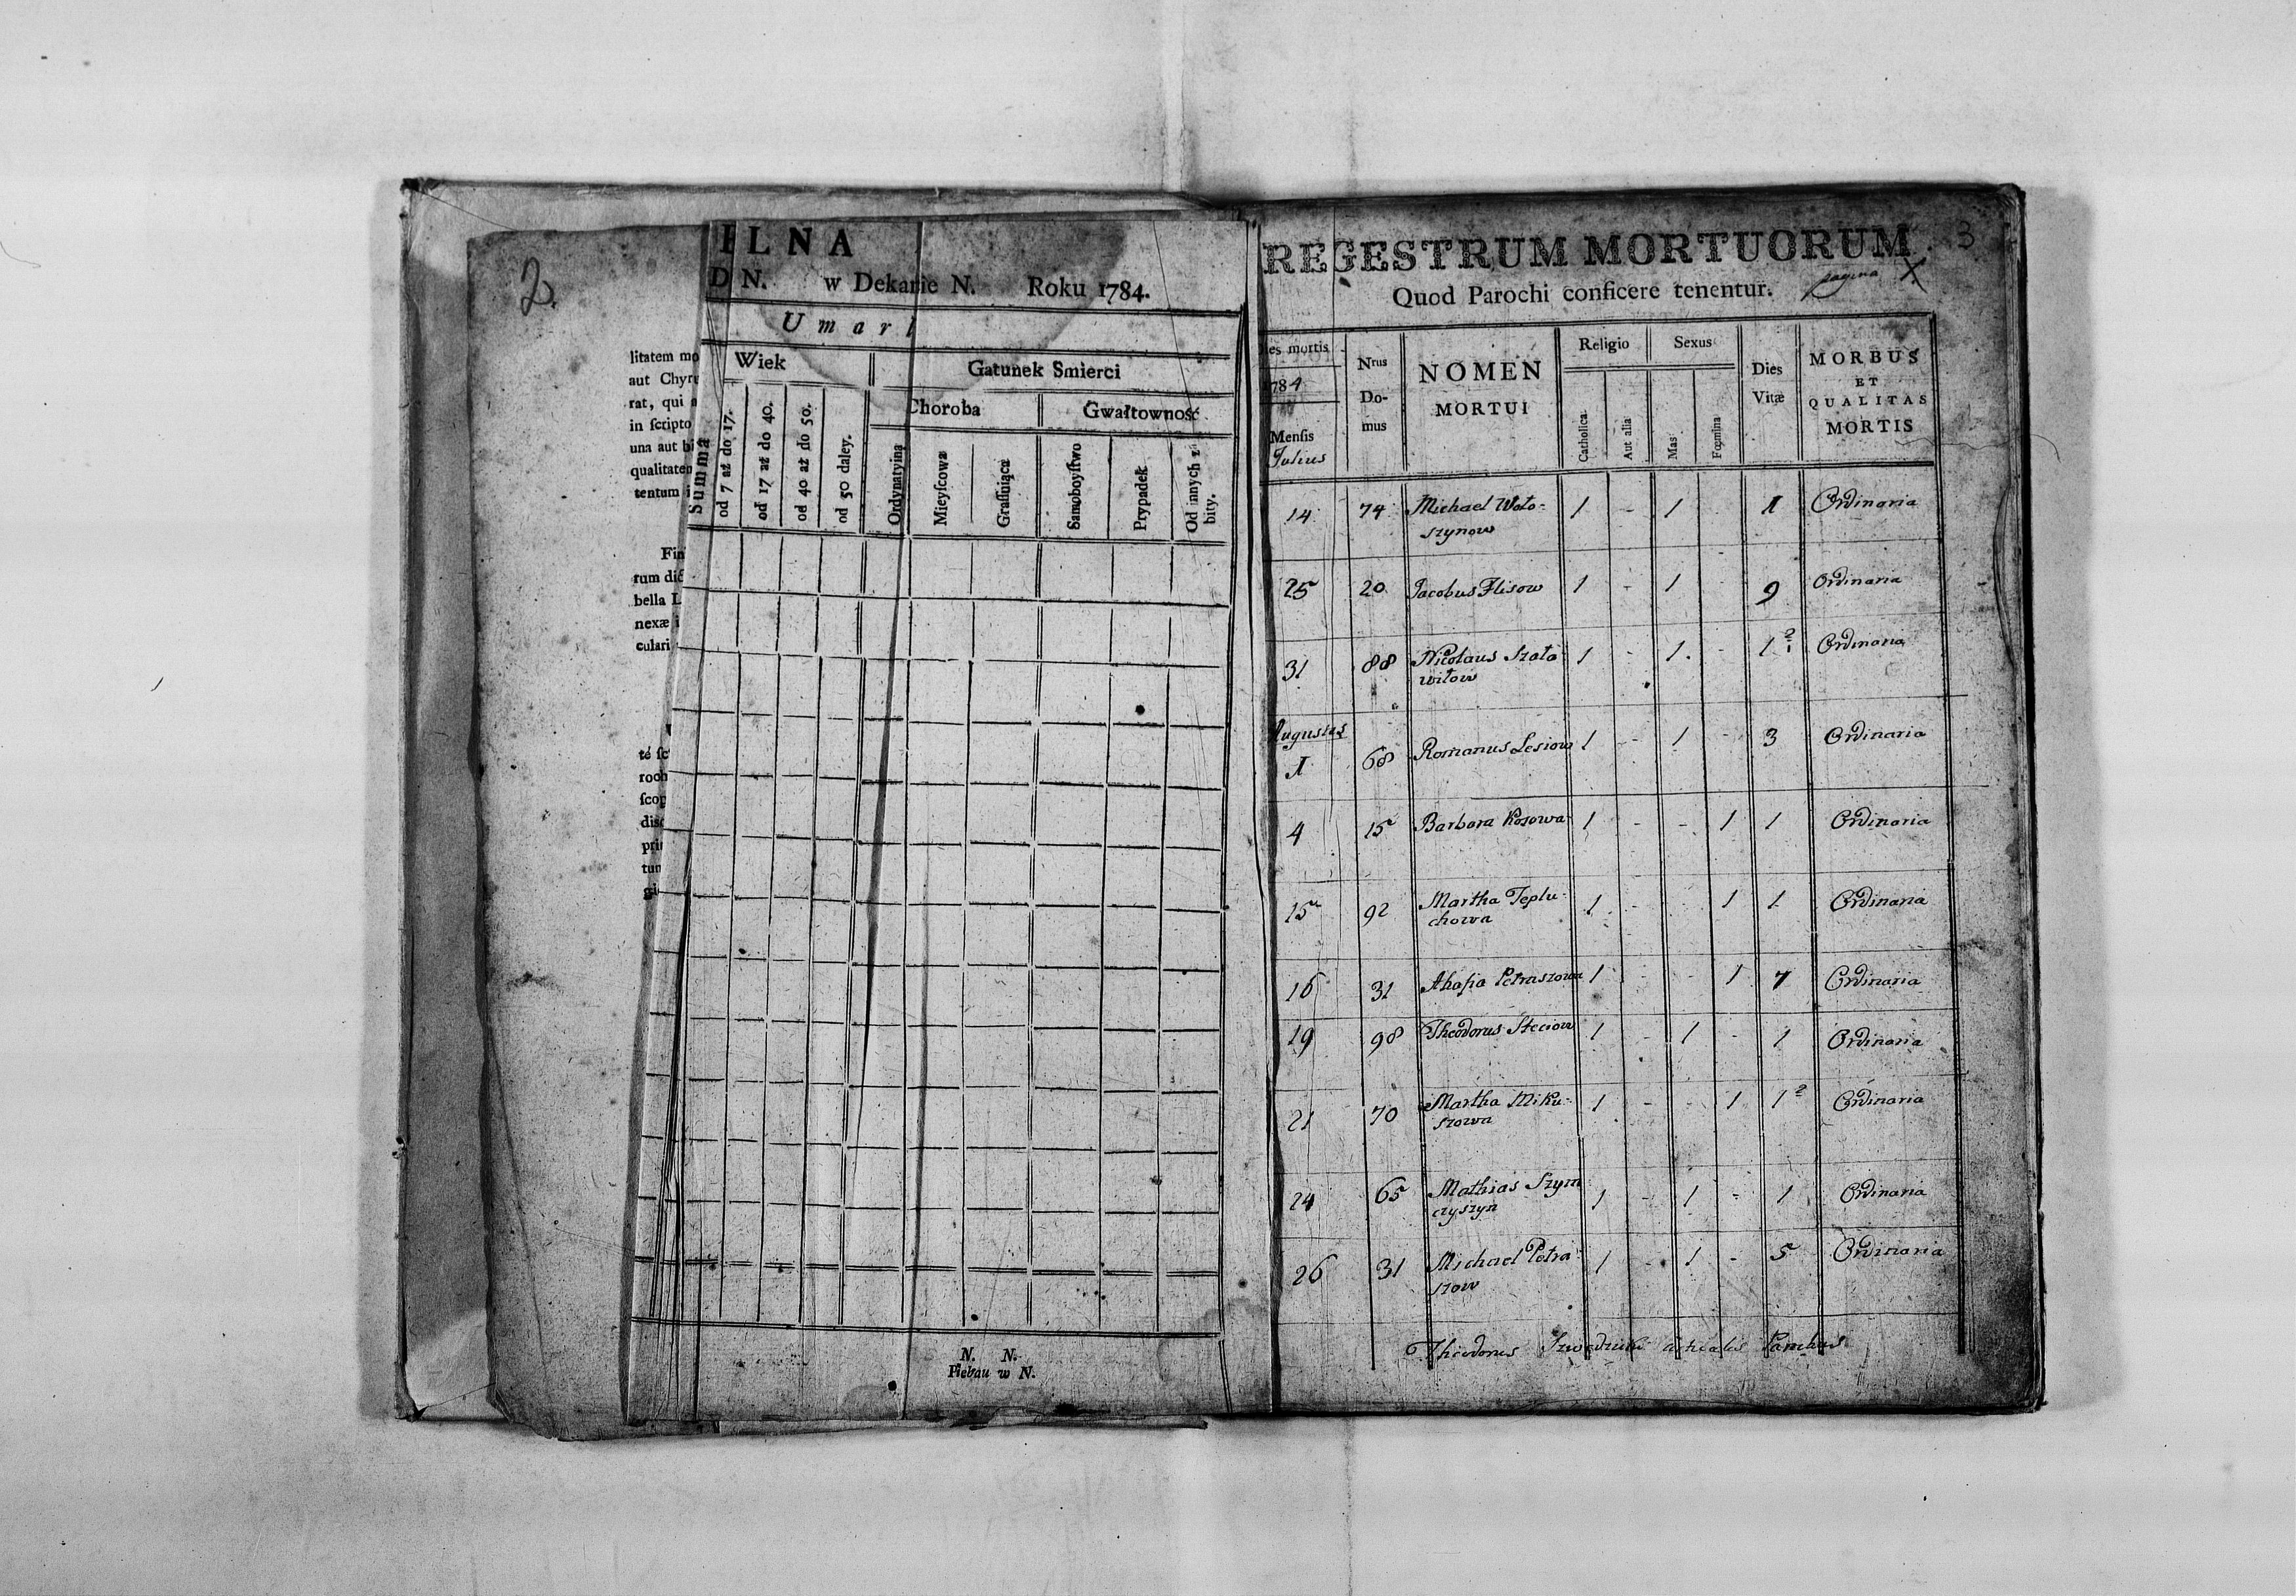 2.
litatem mo
aut Chyr
rat, qui
in ſcripto
una aut bi
qualitatem
tentum i
Fin
rum dic
bella L
nexæ i
culari
té ſc
roch
ſcop
disc
pri
tun
gi
ILNA
D N. w Dekanie N. Roku 1784.
Umarl
Wiek Gatunek Smierci
Choroba Gwałtowność
Summa
od 7 aż do 17.
od 17 aż do 40.
od 40 aż do 50.
od 50 daley.
Ordynaryina
Mieyſcowa
Graſſuiąca
Samoboyſtwo
Przypadek
Od innych
bity.
N. N.
Pleban w N.
3
REGESTRUM MORTUORUM
Quod Parochi conficere tenentur. pagina X
Dies mortis
1784
Menſis
Julius
Nrus
Do-
mus
NOMEN
MORTUI
Religio
Catholica
Aut alia
Sexus
Mas
Fœmina
Dies
Vitæ
MORBUS
ET
QUALITAS
MORTIS
14 74 Michael Woło- 1 - 1 1 Ordinaria
szynow
25 20 Jacobus Flisow 1 - 1 - 9 Ordinaria
31 88 Nicolaus Szała 1 - 1 - 1 2 Ordinaria
witow
Augustus
1 68 Romanus Lesiow 1 - 1 - 3 Ordinaria
4 15 Barbara Kosowa 1 - - 1 1 Ordinaria
15 92 Martha Teplu- 1 - - 1 1 Ordinaria
chowa
16 31 Ahafia Petraszowa 1 - - 1 7 Ordinaria
19 98 Theodorus Steciow 1 - 1 - 1 Ordinaria
21 70 Martha Miku- 1 - - 1 1 2 Ordinaria
szowa
24 65 Mathias Szym 1 - 1 - 1 Ordinaria
czyszyn
26 31 Michael Petra 1 - 1 - 5 Ordinaria
szow
Theodorus